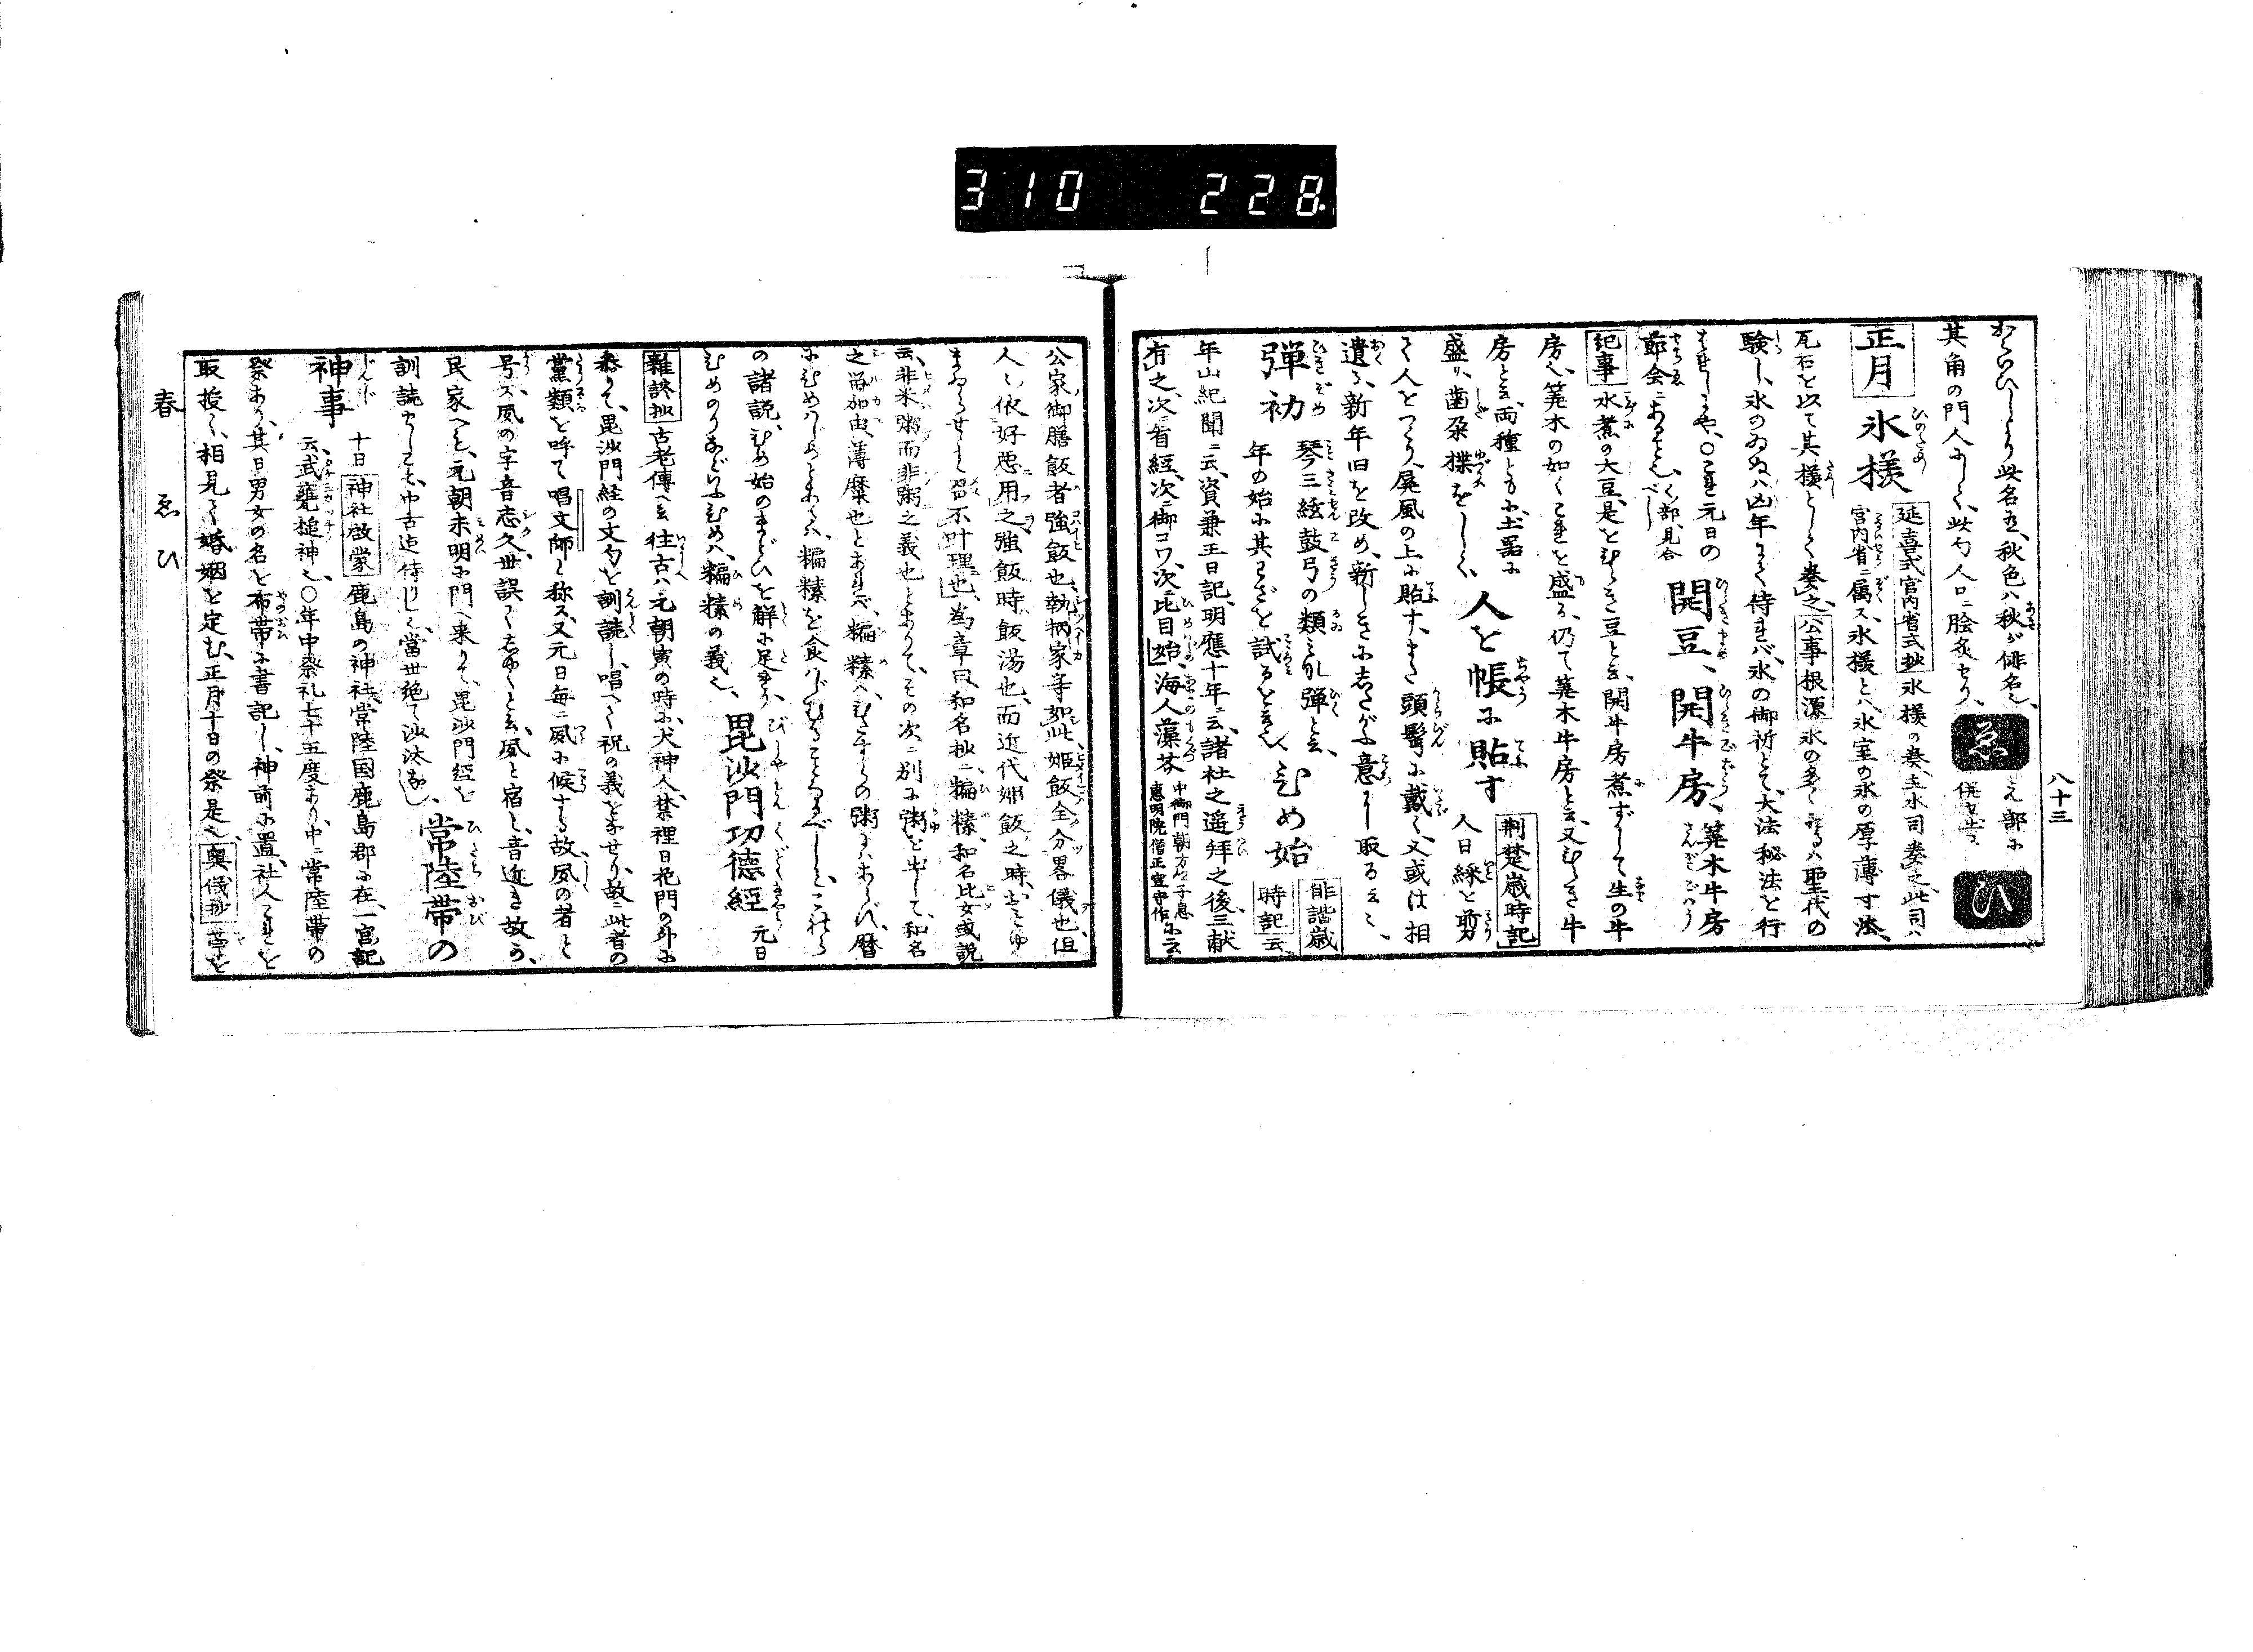 310 228
八十三
からひしより此名有、秋色ハ秋が俳名也、
其角の門人にして、此句人口ニ膾炙セり、
ゑ
え部に
併せ出ス
ひ
正月
氷様
延喜式宮内省式抄
氷様の奏、主水司奏之、此司ハ
宮内省ニ属ス、氷様とハ、氷室の氷の厚薄寸法、
瓦石を以て其様として奏之、公事根源氷の多くゐるハ聖代の
験し、氷のゐぬハ凶年にて侍れバ、氷の御祈とて、大法秘法を行
はれしにや、○これ元日の
節会におなじ、く部見合べし
開豆、開牛房、
筭木牛房
紀事
水煮の大豆、是をひらき豆と云、開牛房煮ずして生の牛
房也、筭木の如くこれを盛る、仍て筭木牛房と云、又ひらき牛
房と云、両種ともに土器に
盛り、歯朶楪をしく、
人を帳に貼す
荆楚歳時記
人日綵を剪
て人をつくり、屏風の上に貼す、また頭髻に戴く、又或は相
遺る、新年旧を改め、新しきにしたがふ意に取ると云々、
弾初
琴三絃鼓弓の類ミな弾と云、
年の始に其わざを試るを云、
ひめ始
俳諧歳時記云
年山紀聞ニ云、資兼王日記、明應十年ニ云、諸社之遥拝之後三献
有之、次ニ看経、次ニ御コワ、次ニ比目始、海人藻芥
中御門朝方公子息
恵明院僧正宣守作に云
公家御膳飯者強飯也、執柄家等如此、姫飯全分畧儀也、但
人々依好悪用之、強飯時飯湯也、而近代姫飯之時、
まゐらせしむ、不叶理也、為章曰、和名抄ニ糄䊦、和名比女或説
云、非米粥而非粥之義也とありて、その次ニ別に粥を出して、和名
之留加由、薄糜也とあれば、糄䊦ハ、ひたすらの粥にハあらず、暦
にひめはじめとあるハ、糄䊦を食ハじむることなるべしと、これら
の諸説、ひめ始のまどひを解に足れり、
ひめのりなどいふひめハ、糄䊦の義也、
毘沙門功徳經
元日
雜談抄
古老傳へ云、往古ハ元朝寅の時に、犬神人、禁裡日花門の外に
参りて、毘沙門経の文句を訓読し、唱へて祝の義をなせり、故ニ此者の
黨類を呼て唱文師と称ス、又元日毎ニ夙に候する故、夙の者と
号ス、夙の字音志久、世誤てしゆくと云、夙と宿と、音近き故か、
民家へも、元朝未明に門へ来りて、毘沙門経を
訓読せしこと、中古迄侍りしが、當世絶て沙汰なし、
常陸帯の
神事
十日
神社啓蒙
鹿島の神社、常陸国鹿島郡に在、一宮記
云、武甕槌神也、○年中祭礼七十五度あり、中ニ常陸帯の
祭あり、其日男女の名を布帯に書記し、神前に置、社人これを
取授く、相見て婚姻を定む、正月十日の祭是也、奥儀抄帯を
春
ゑ
ひ